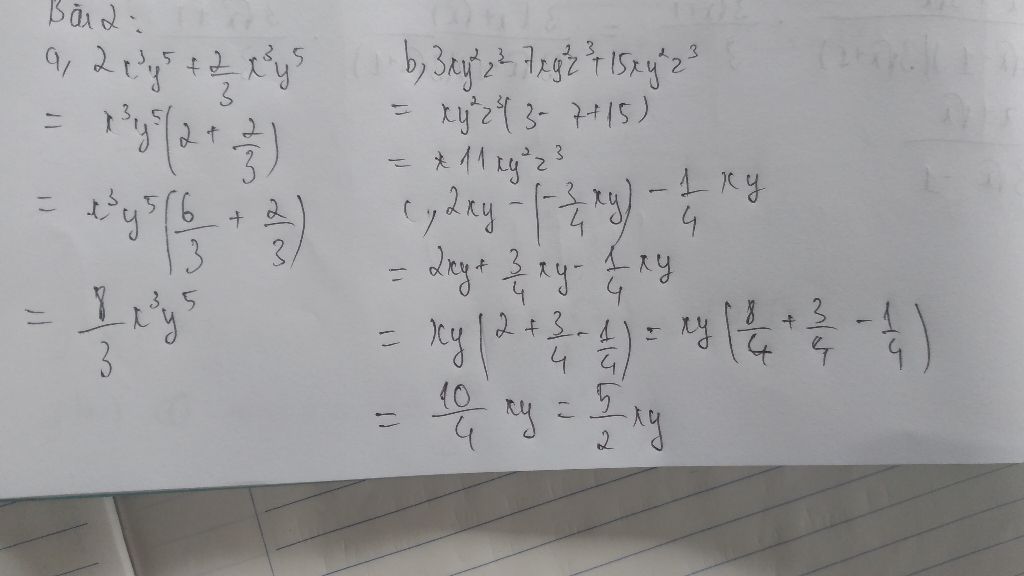 Bài 2:
a, 2x³y⁵ + 2/3 x³y⁵
= x³y⁵(2 + 2/3)
= x³y⁵(6/3 + 2/3)
= 8/3 x³y⁵
b, 3xy²z³ - 7xy²z³ + 15xy²z³
= xy²z³(3 - 7 + 15)
= 11xy²z³
c, 2xy - (-3/4 xy) - 1/4 xy
= 2xy + 3/4 xy - 1/4 xy
= xy(2 + 3/4 - 1/4) = xy(8/4 + 3/4 - 1/4)
= 10/4 xy = 5/2 xy